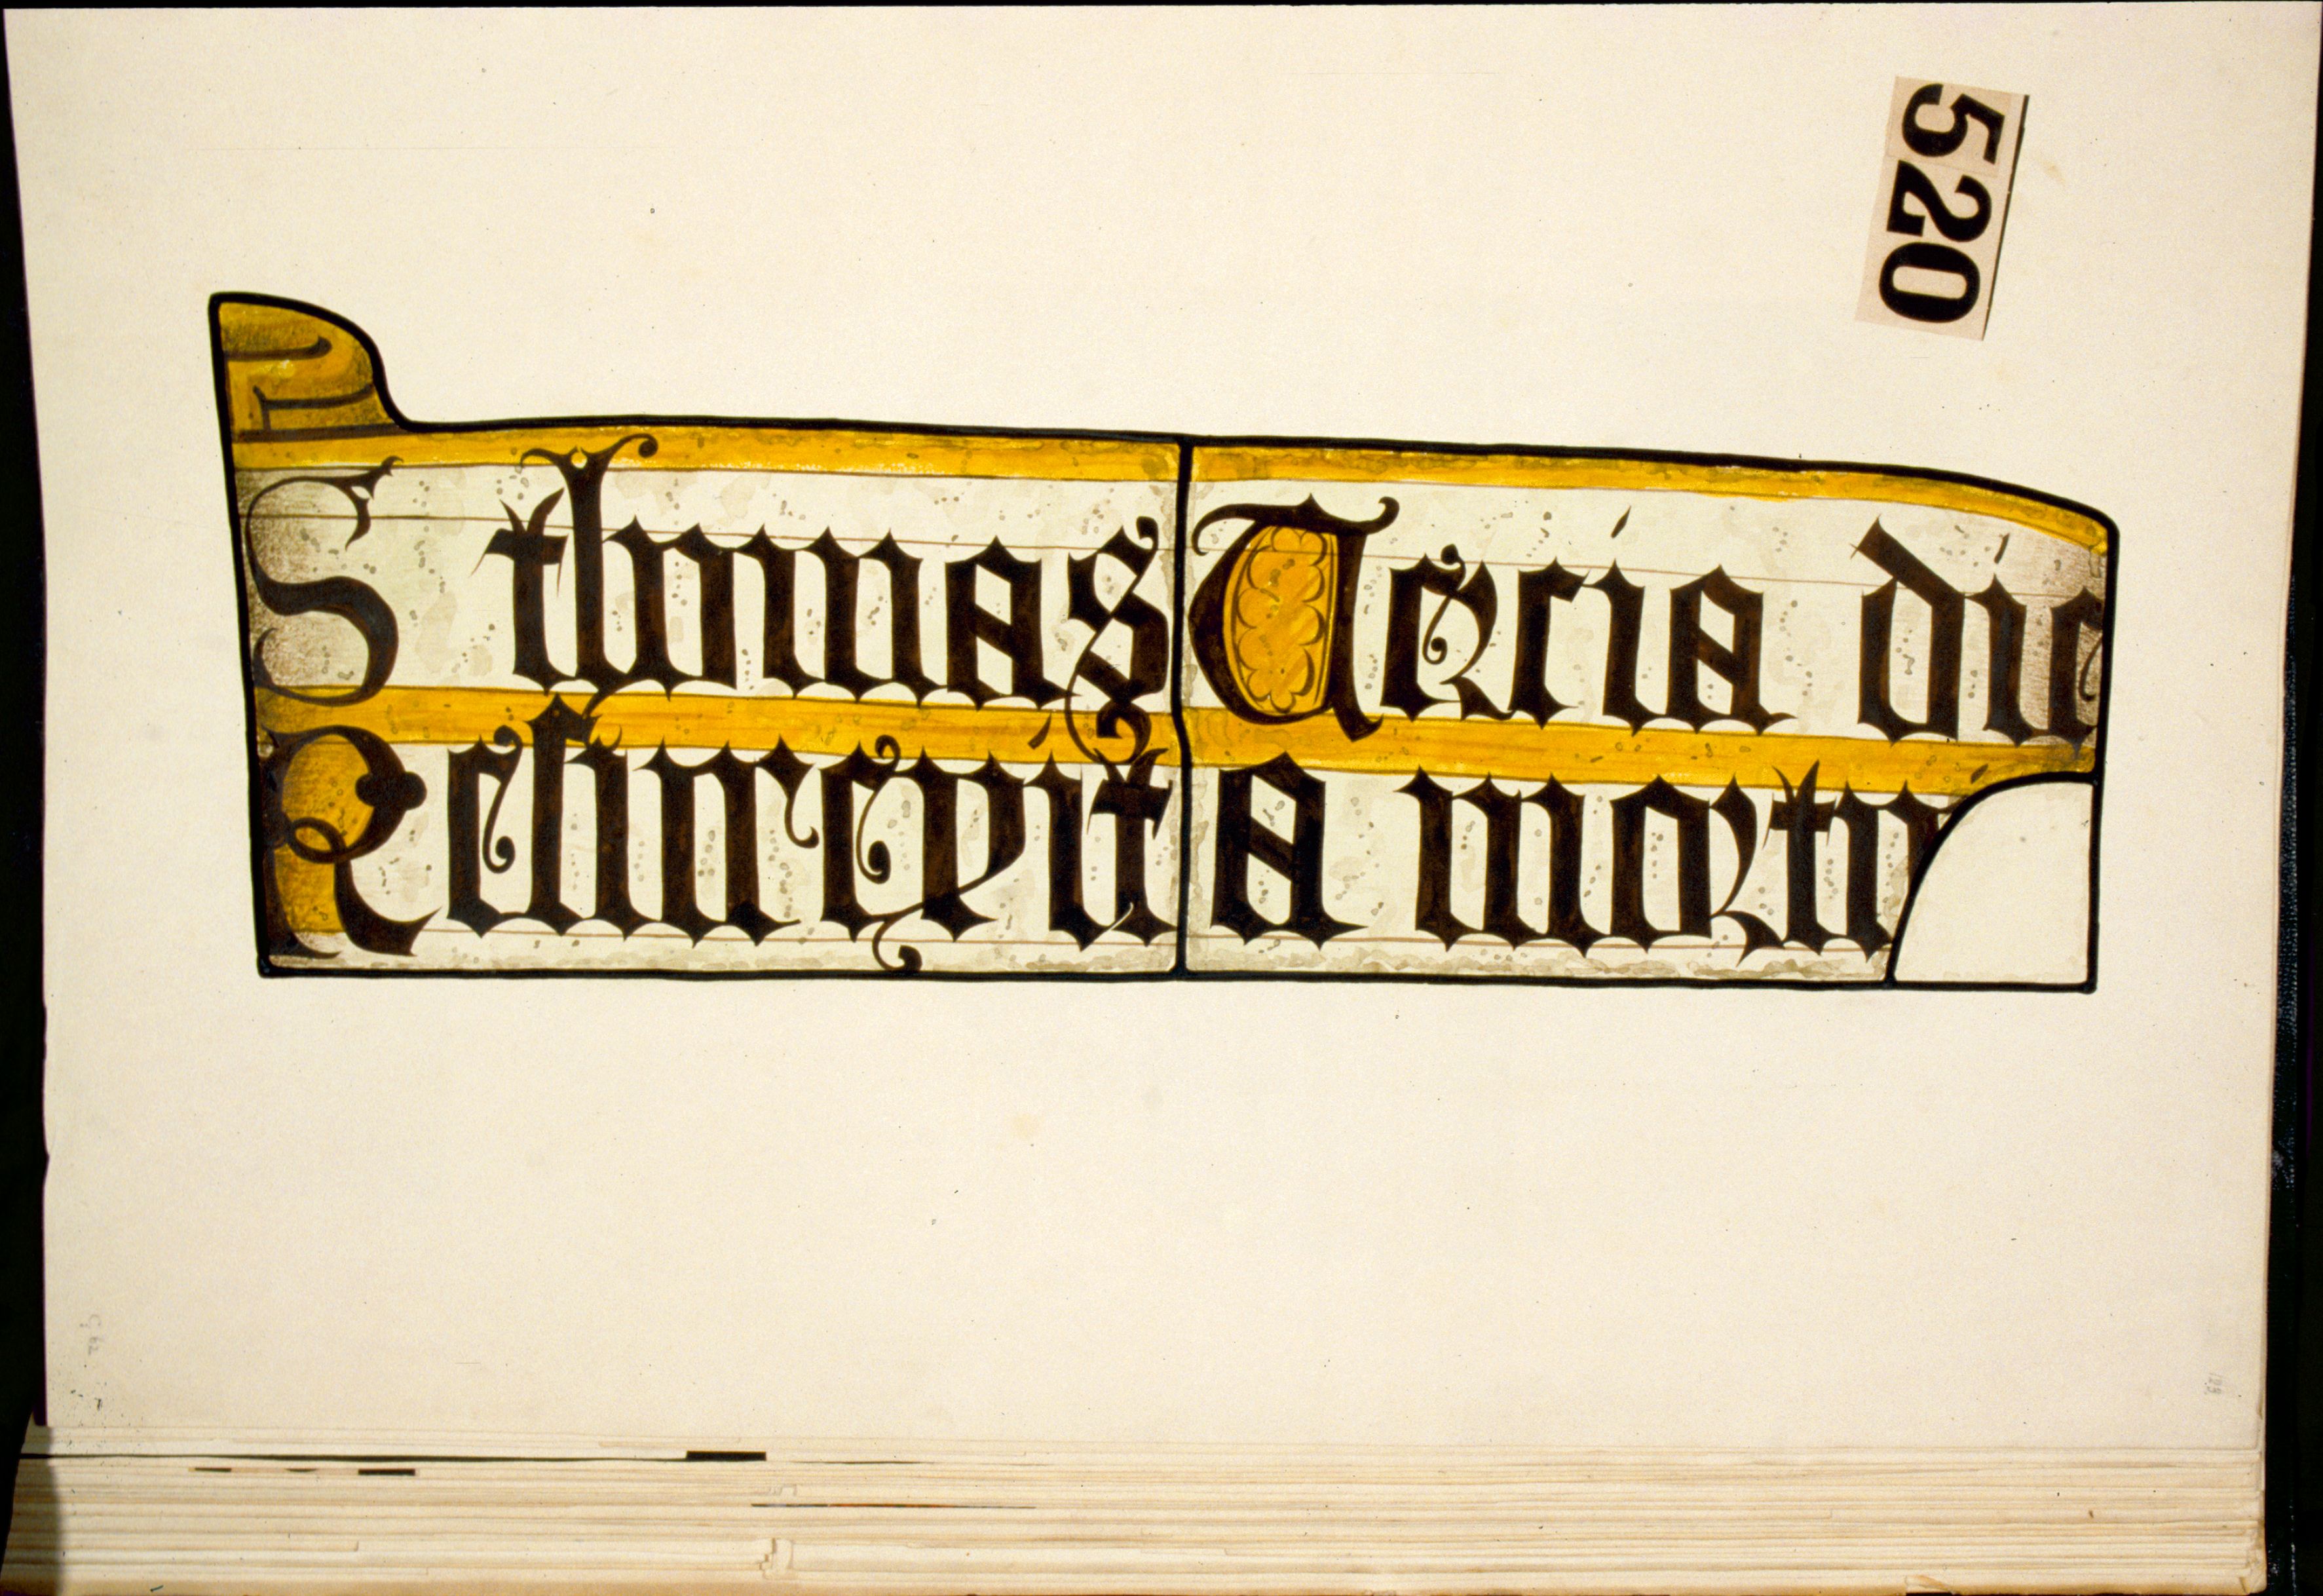 520
S thomas Tercia die
Resurexit a mortu